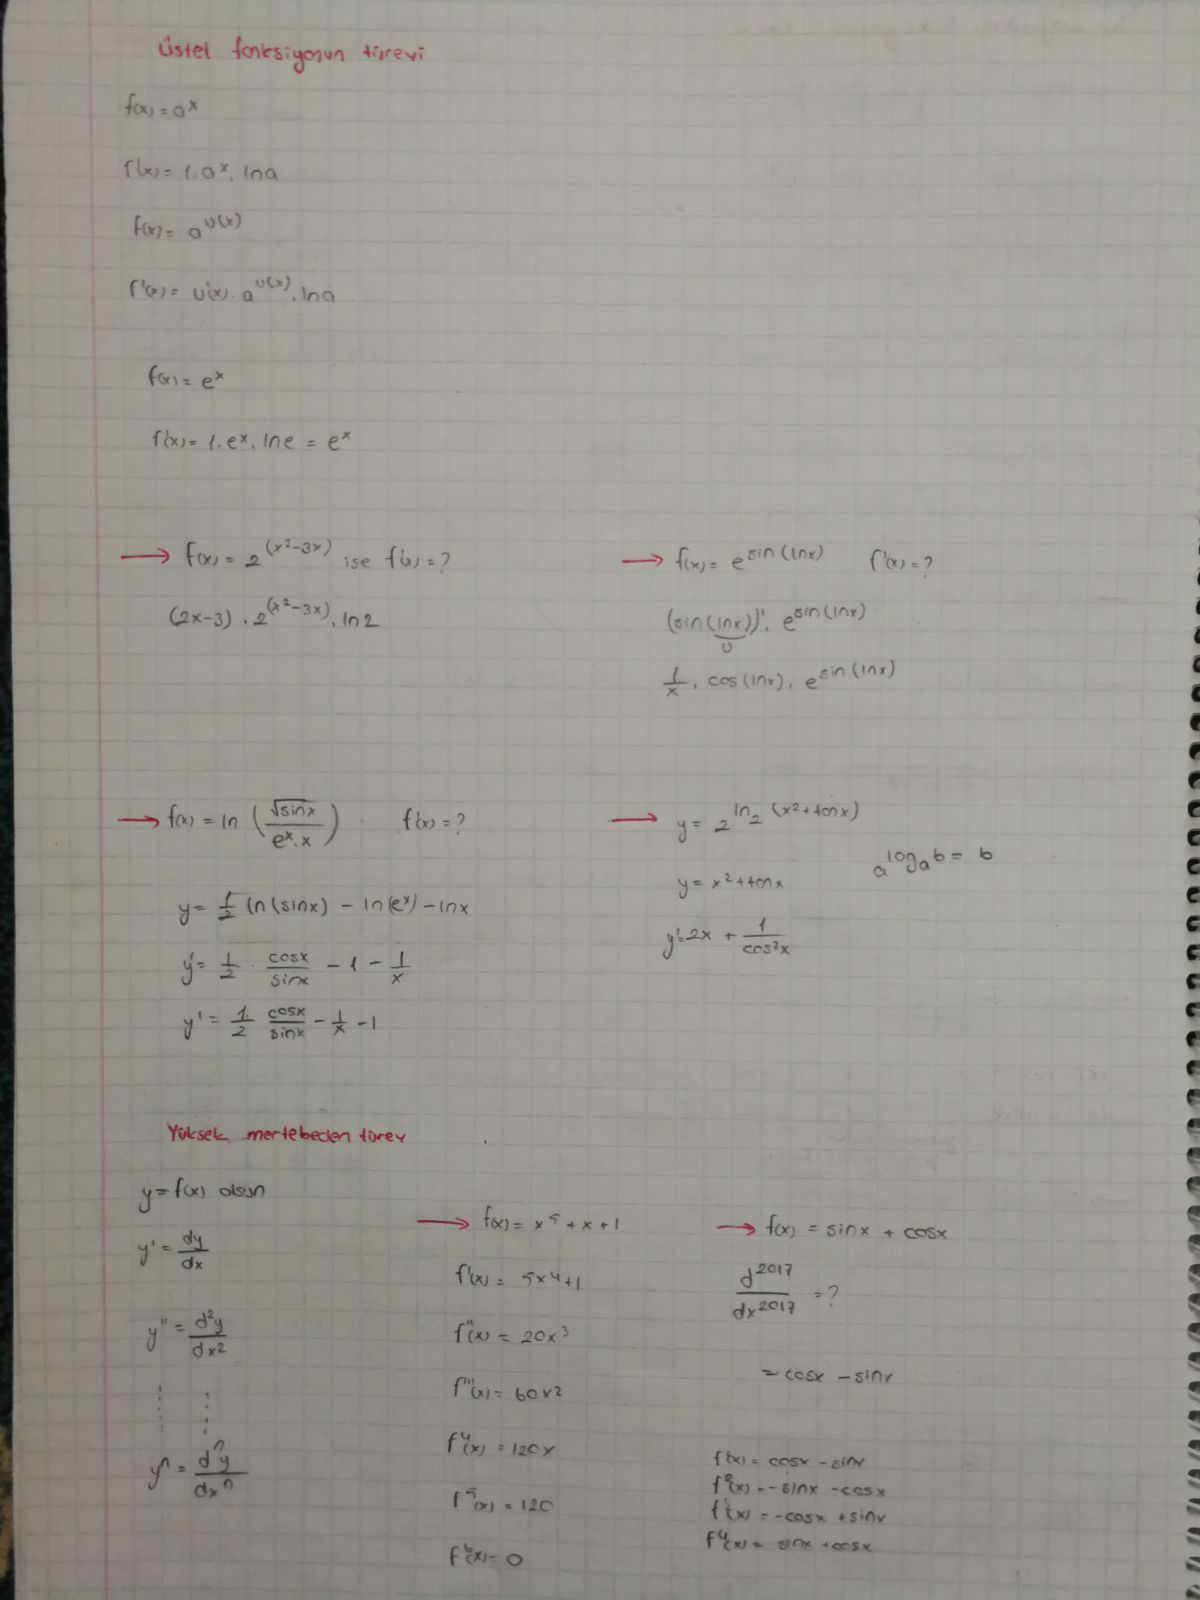 Üstel fonksiyonun türevi
f(x) = a^x
f'(x) = 1.a^x. lna
f(x) = a^u(x)
f'(x) = u'(x). a^u(x). lna
f(x) = e^x
f'(x) = 1.e^x. lne = e^x
→ f(x) = 2^(x²-3x) ise f'(x) = ?
(2x-3) . 2^(x²-3x). ln2
→ f(x) = e^sin(lnx) f'(x) = ?
(sin(lnx))'. e^sin(lnx)
u
1/x . cos(lnx). e^sin(lnx)
→ f(x) = ln (√sinx / e^x.x) f'(x) = ?
y = 1/2 ln(sinx) - ln(e^x) - lnx
y' = 1/2 . cosx/sinx - 1 - 1/x
y' = 1/2 . cosx/sinx - 1/x - 1
→ y = 2^ln₂(x²+tanx)
a^log_a b = b
y = x²+tanx
y' = 2x + 1/cos²x
Yüksek mertebeden türev
y = f(x) olsun
y' = dy/dx
y'' = d²y/dx²
y^n = d^n y/dx^n
→ f(x) = x⁵ + x + 1
f'(x) = 5x⁴+1
f''(x) = 20x³
f'''(x) = 60x²
f⁴(x) = 120x
f⁵(x) = 120
f⁶(x) = 0
→ f(x) = sinx + cosx
d^2017/dx^2017 = ?
= cosx - sinx
f'(x) = cosx - sinx
f²(x) = -sinx - cosx
f³(x) = -cosx + sinx
f⁴(x) = sinx + cosx